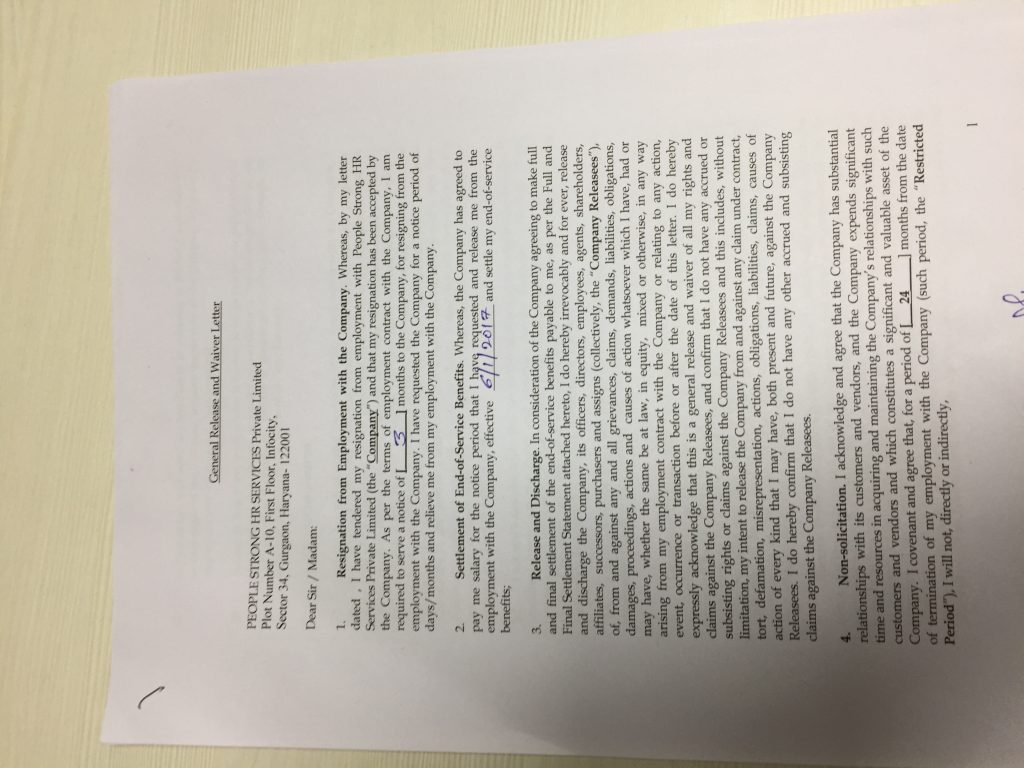 General Release and Waiver Letter
PEOPLE STRONG HR SERVICES Private Limited
Plot Number A-10, First Floor, Infocity,
Sector 34, Gurgaon, Haryana- 122001
Dear Sir / Madam:
1. Resignation from Employment with the Company. Whereas, by my letter
dated , I have tendered my resignation from employment with People Strong HR
Services Private Limited (the "Company") and that my resignation has been accepted by
the Company. As per the terms of employment contract with the Company, I am
required to serve a notice of [ 3 ] months to the Company, for resigning from the
employment with the Company. I have requested the Company for a notice period of
days/months and relieve me from my employment with the Company.
2. Settlement of End-of-Service Benefits. Whereas, the Company has agreed to
pay me salary for the notice period that I have requested and release me from the
employment with the Company, effective 6/1/2017 and settle my end-of-service
benefits;
3. Release and Discharge. In consideration of the Company agreeing to make full
and final settlement of the end-of-service benefits payable to me, as per the Full and
Final Settlement Statement attached hereto, I do hereby irrevocably and for ever, release
and discharge the Company, its officers, directors, employees, agents, shareholders,
affiliates, successors, purchasers and assigns (collectively, the "Company Releasees"),
of, from and against any and all grievances, claims, demands, liabilities, obligations,
damages, proceedings, actions and causes of action whatsoever which I have, had or
may have, whether the same be at law, in equity, mixed or otherwise, in any way
arising from my employment contract with the Company or relating to any action,
event, occurrence or transaction before or after the date of this letter. I do hereby
expressly acknowledge that this is a general release and waiver of all my rights and
claims against the Company Releasees, and confirm that I do not have any accrued or
subsisting rights or claims against the Company Releasees and this includes, without
limitation, my intent to release the Company from and against any claim under contract,
tort, defamation, misrepresentation, actions, obligations, liabilities, claims, causes of
action of every kind that I may have, both present and future, against the Company
Releasees. I do hereby confirm that I do not have any other accrued and subsisting
claims against the Company Releasees.
4. Non-solicitation. I acknowledge and agree that the Company has substantial
relationships with its customers and vendors, and the Company expends significant
time and resources in acquiring and maintaining the Company's relationships with such
customers and vendors and which constitutes a significant and valuable asset of the
Company. I covenant and agree that, for a period of [ 24 ] months from the date
of termination of my employment with the Company (such period, the "Restricted
Period"), I will not, directly or indirectly,
1